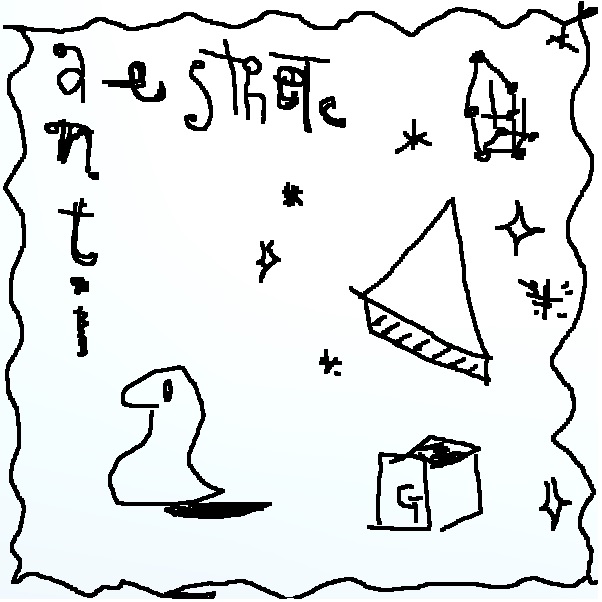 aesthetic
n
t
i
G